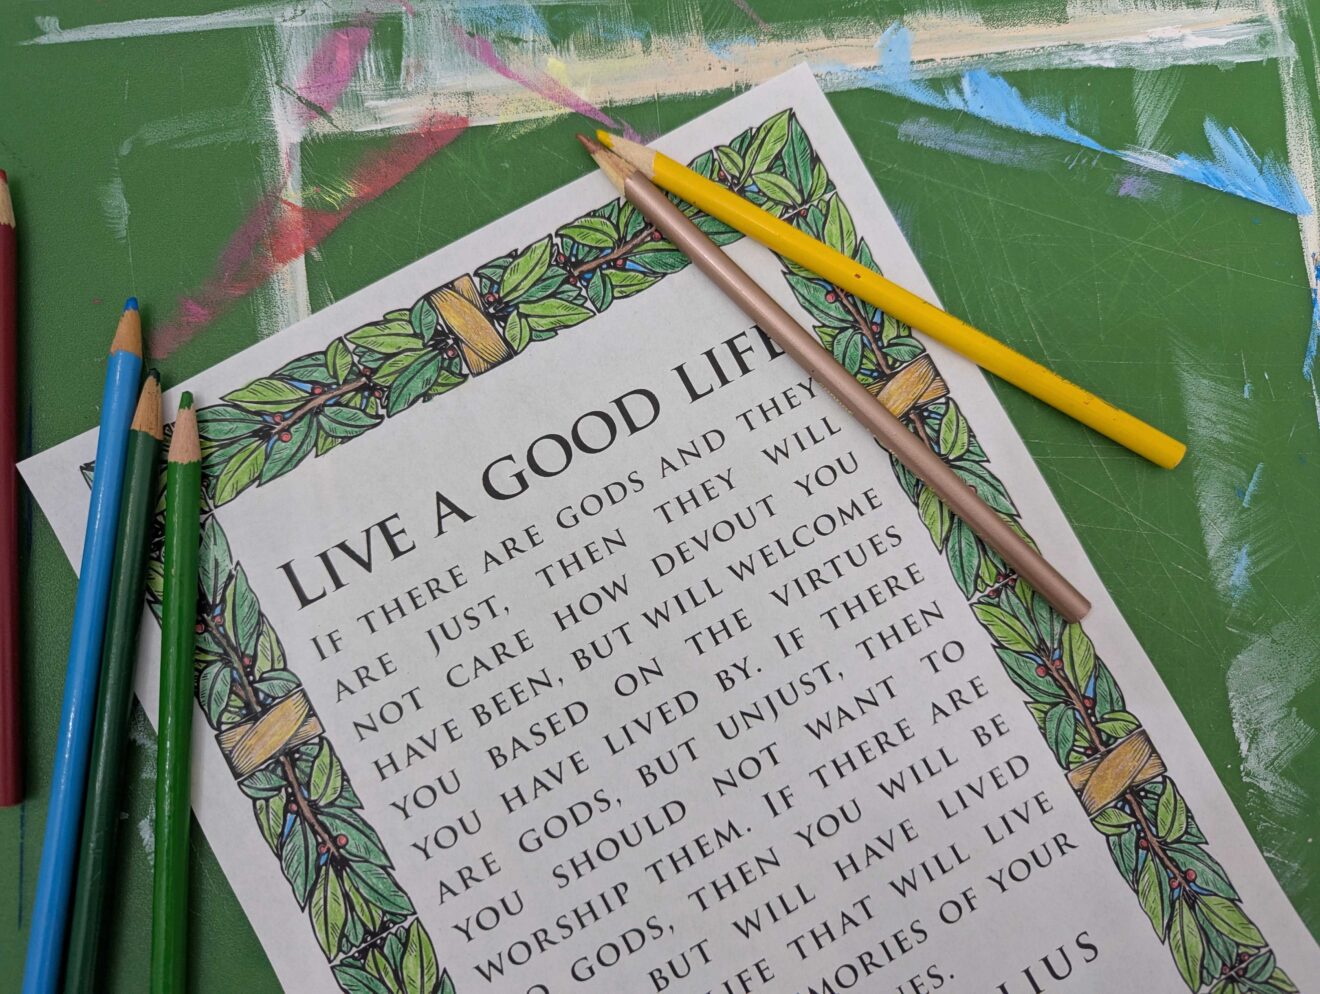 LIVE A GOOD LIFE
IF THERE ARE GODS AND THEY
ARE JUST, THEN THEY WILL
NOT CARE HOW DEVOUT YOU
HAVE BEEN, BUT WILL WELCOME
YOU BASED ON THE VIRTUES
YOU HAVE LIVED BY. IF THERE
ARE GODS, BUT UNJUST, THEN
YOU SHOULD NOT WANT TO
WORSHIP THEM. IF THERE ARE
GODS, THEN YOU WILL BE
BUT WILL HAVE LIVED
LIFE THAT WILL LIVE
OF YOUR